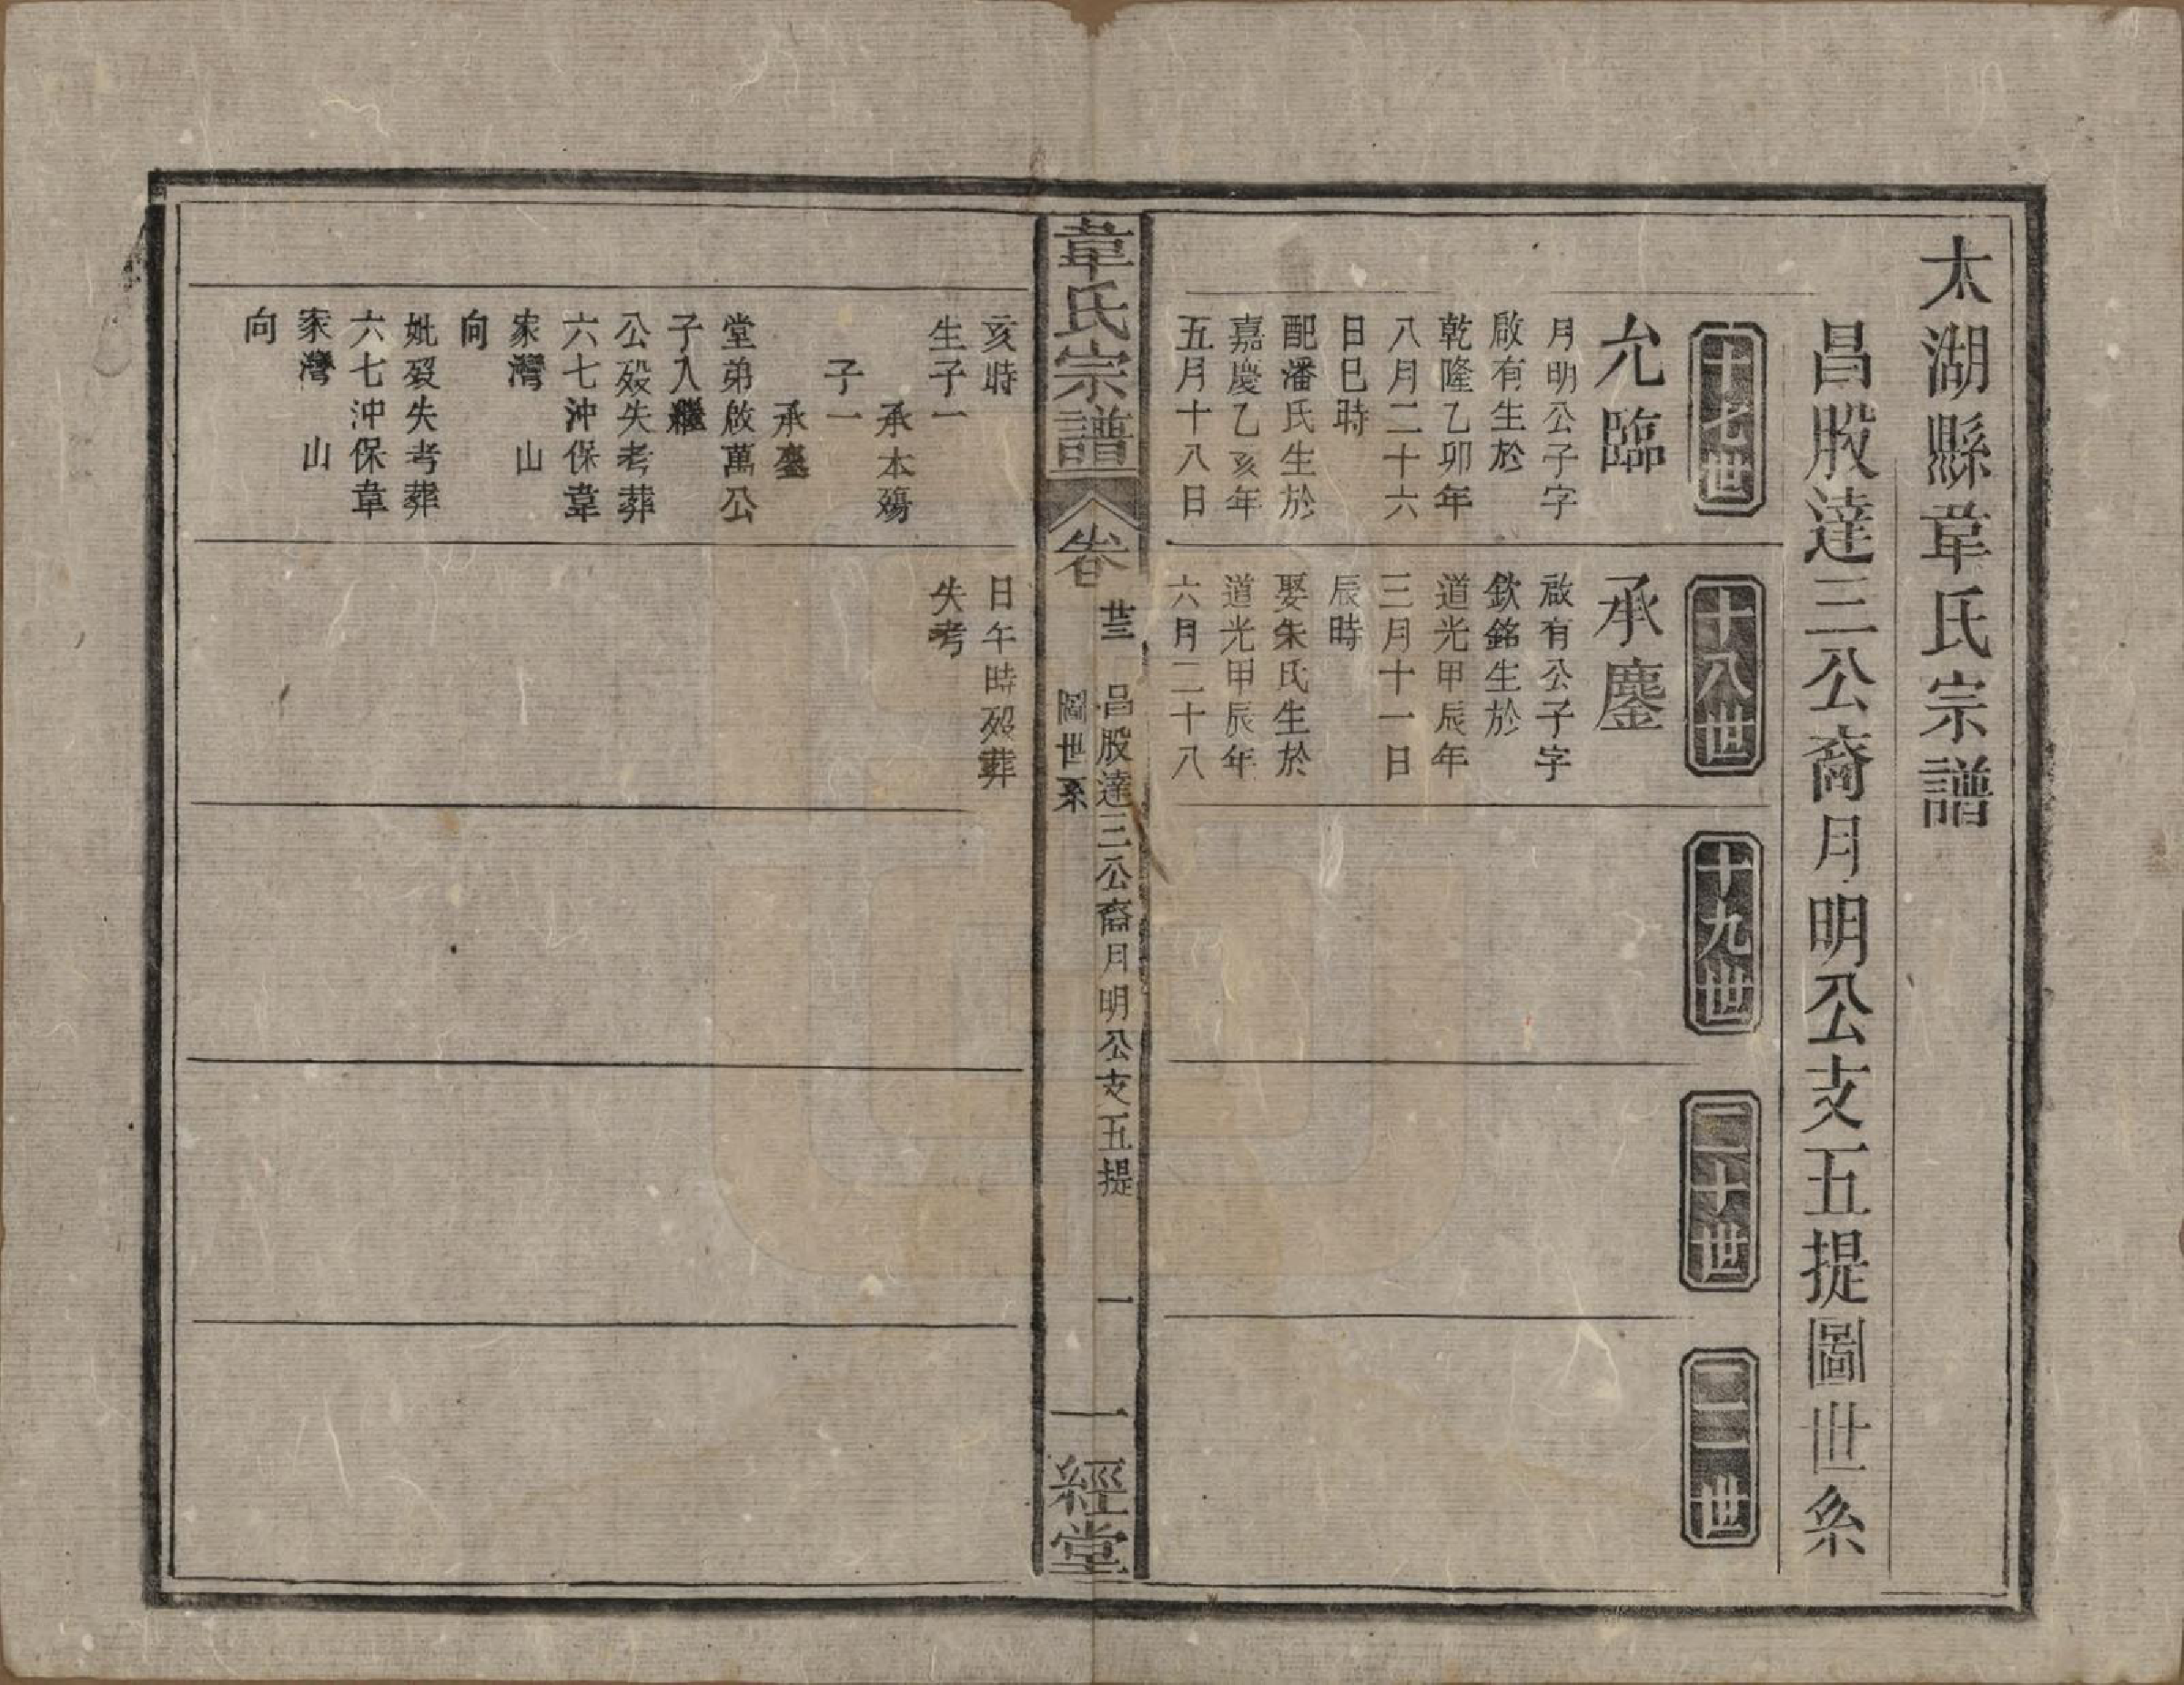 太湖縣韋氏宗譜
昌股達三公裔月明公支五提圖世系
十七世
允臨
月明公子字
啟有生於
乾隆乙卯年
八月二十六
日巳時
配潘氏生於
嘉慶乙亥年
五月十八日
十八世
承鏖
啟有公子字
欽銘生於
道光甲辰年
三月十一日
辰時
娶朱氏生於
道光甲辰年
六月二十八
十九世
二十世
二一世
韋氏宗譜
卷
廿三
昌股達三公裔月明公支五提
圖世系
一
一經堂
亥時
生子一
承本殤
子一
承鏖
堂弟啟萬公
子入繼
公歿失考葬
六七沖保韋
家灣 山
向
妣歿失考葬
六七沖保韋
家灣 山
向
日午時歿葬
失考